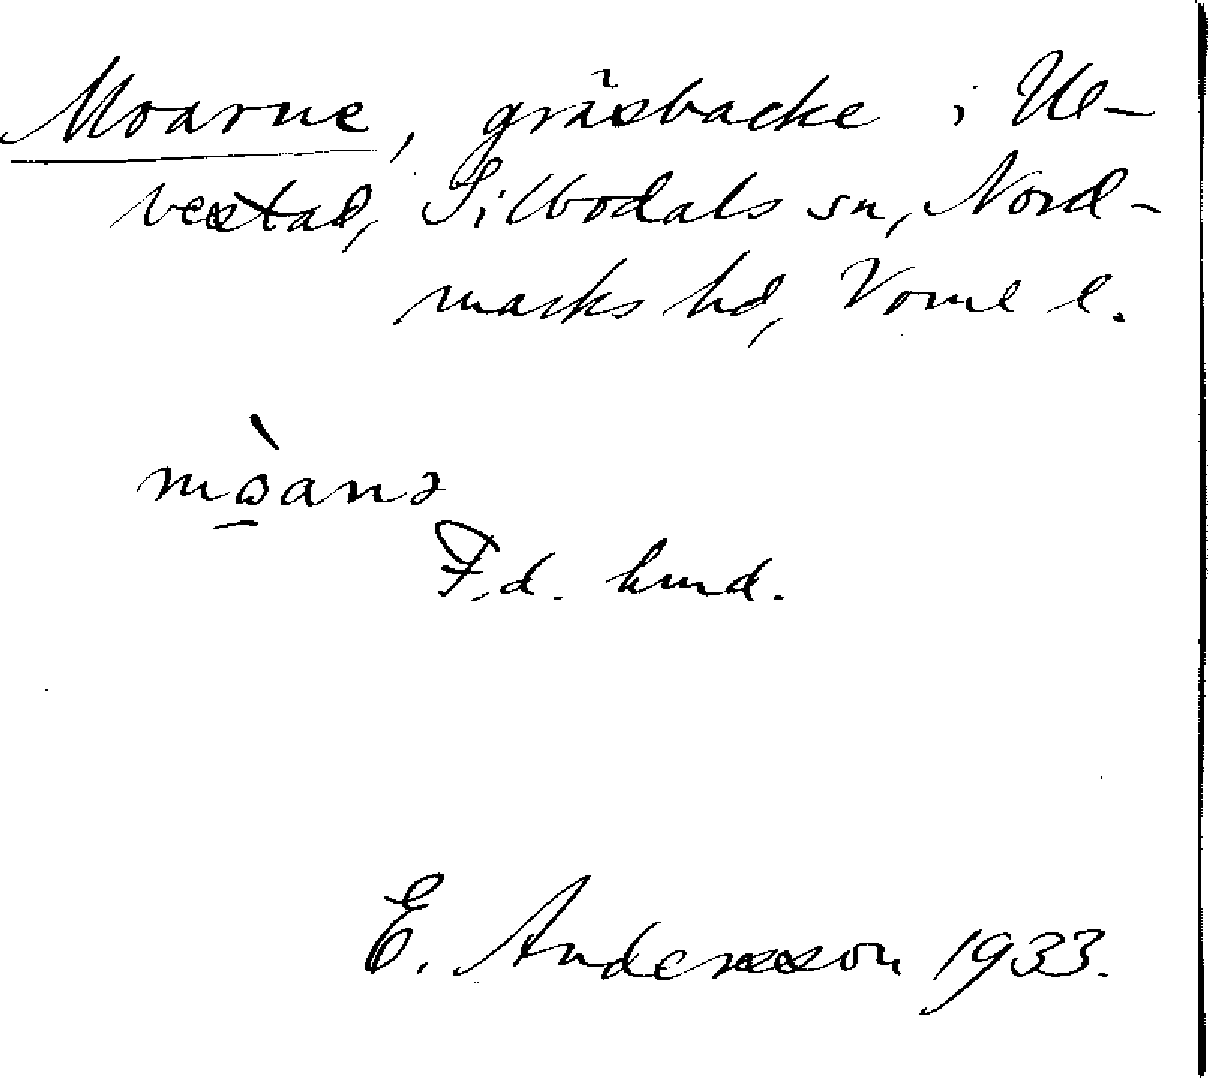 Moarne, gräsbacke i Ul-
vestad, Silbodals sn, Nord-
marks hd, Vorml l.
mo̱̍anə
F.d. lund.
E. Andersson 1933.